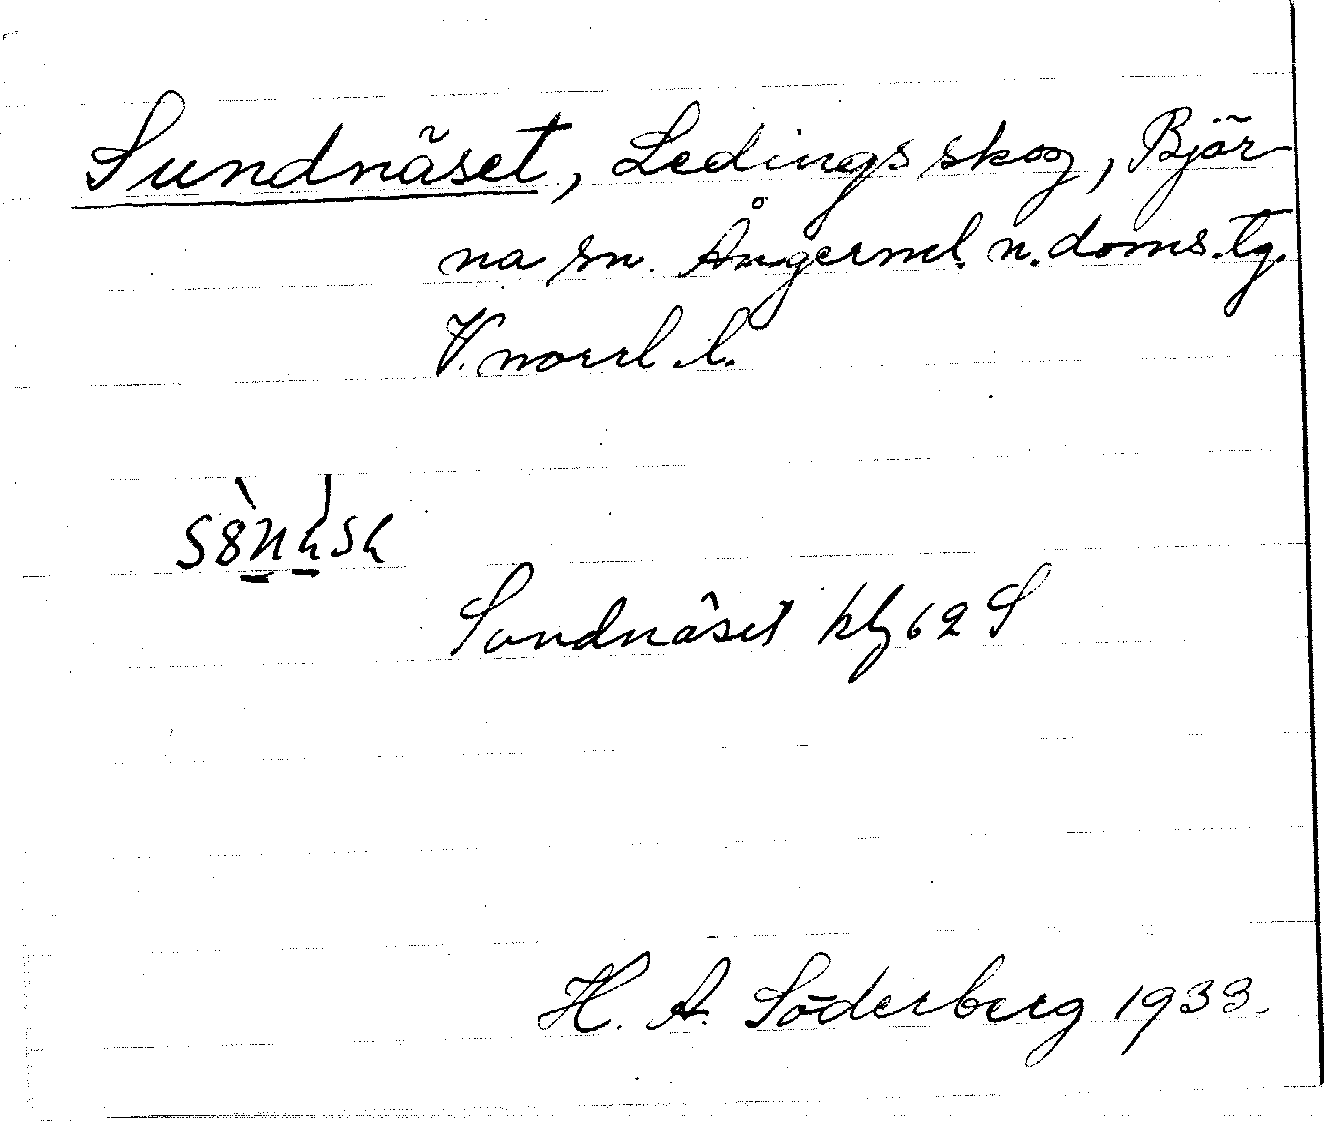 Sundnäset, Ledingsskog, Björ-
na sn. Ångerml. n. doms. tg.
V. norrl l.
Sundnäset kbl 62 S
H. A. Söderberg 1933.